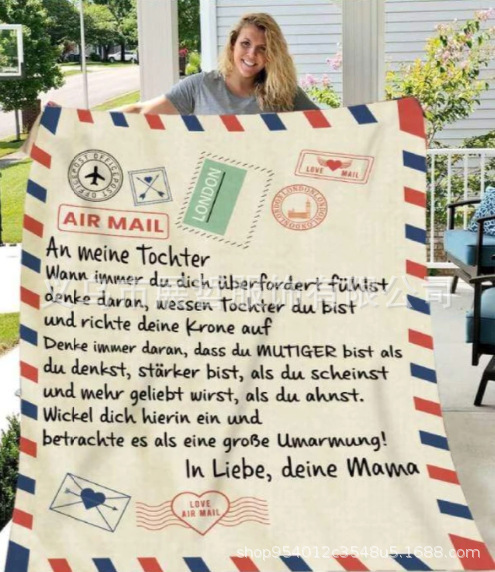 POST OFFICE
LONDON
LOVE MAIL
LONDON
AIR MAIL
An meine Tochter
Wann immer du dich überfordert fühlst
denke daran, wessen Tochter du bist
und richte deine Krone auf
Denke immer daran, dass du MUTIGER bist als
du denkst, stärker bist, als du scheinst
und mehr geliebt wirst, als du ahnst.
Wickel dich hierin ein und
betrachte es als eine große Umarmung!
In Liebe, deine Mama
LOVE
AIR MAIL
shop954012c3548u5.1688.com